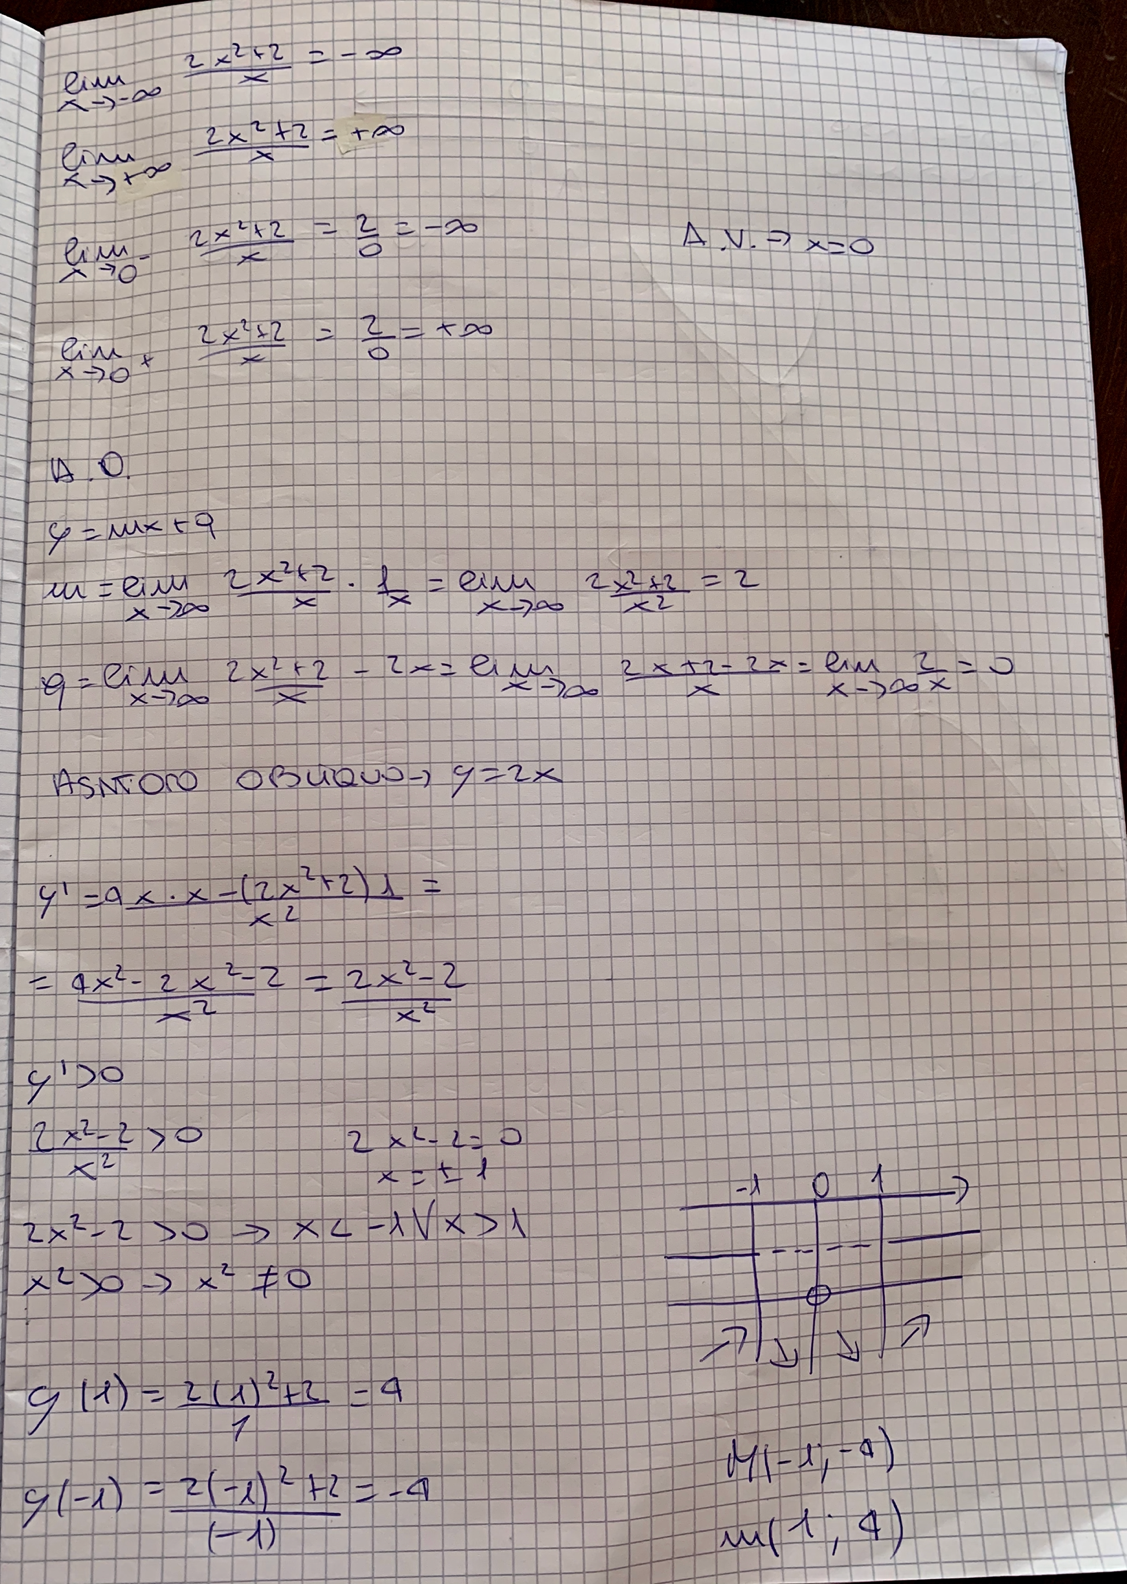 lim x→-∞ (2x²+2)/x = -∞
lim x→+∞ (2x²+2)/x = +∞
lim x→0⁻ (2x²+2)/x = 2/0 = -∞ A.V. → x=0
lim x→0⁺ (2x²+2)/x = 2/0 = +∞
A.O.
y = mx + q
m = lim x→∞ (2x²+2)/x · 1/x = lim x→∞ (2x²+2)/x² = 2
q = lim x→∞ (2x²+2)/x - 2x = lim x→∞ (2x+2-2x)/x = lim x→∞ 2/x = 0
ASNTOTO OBLIQUO → y=2x
y' = (4x·x-(2x²+2)1)/x² =
= (4x²-2x²-2)/x² = (2x²-2)/x²
y'>0
(2x²-2)/x² > 0 2x²-2=0
x=±1
-1 0 1
2x²-2>0 → x<-1 V x>1
x²>0 → x² ≠0
y(1) = (2(1)²+2)/1 = 4
M(-1;-4)
y(-1) = (2(-1)²+2)/(-1) = -4
m(1;4)